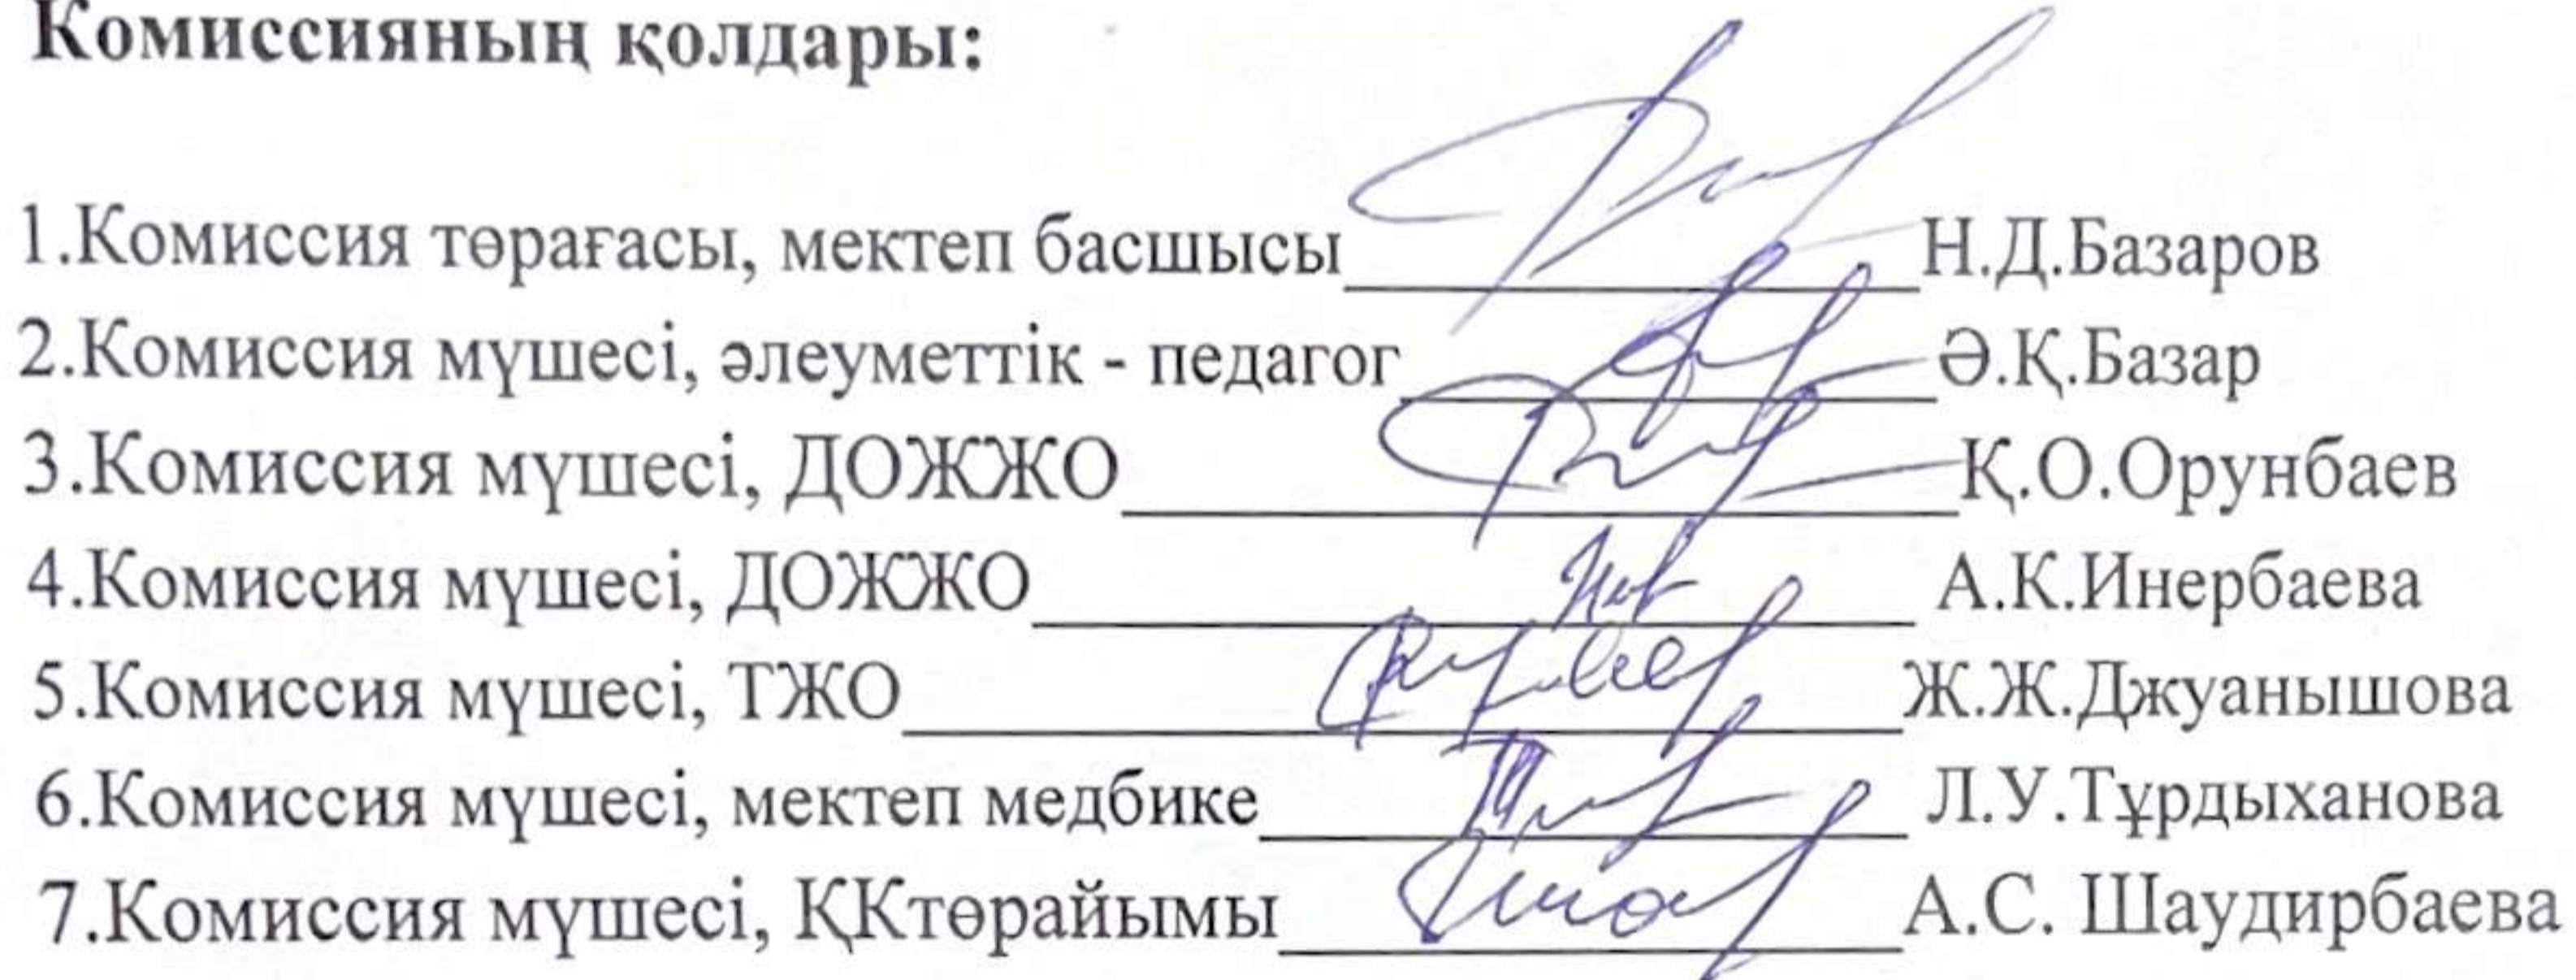 Комиссияның қолдары:
1.Комиссия төрағасы, мектеп басшысы Н.Д.Базаров
2.Комиссия мүшесі, әлеуметтік - педагог Ә.Қ.Базар
3.Комиссия мүшесі, ДОЖЖО Қ.О.Орунбаев
4.Комиссия мүшесі, ДОЖЖО А.К.Инербаева
5.Комиссия мүшесі, ТЖО Ж.Ж.Джуанышова
6.Комиссия мүшесі, мектеп медбике Л.У.Тұрдыханова
7.Комиссия мүшесі, ҚКтөрайымы А.С. Шаудирбаева